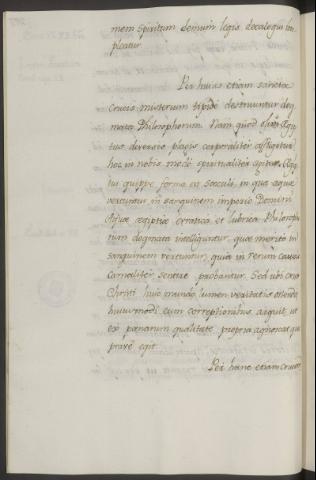 mem spiritum demum legis decalogui im
pleatur.
Per huius etiam sanctæ
crucis misterium typicè destruuntur dog
mata Philosophorum. Nam quod olim Ægy
ptus diversis plagis corporaliter affligitur
hoc in nobis modò spiritualiter agitur. Ægy
ptus quippe forma est sæculi, in qua aquæ
vertuntur in sanguinem imperio Domini
Aquæ ægyptiæ erratica et lubrica Philosopho
rum dogmata intelliguntur, quæ meritò in
sanguinem vertuntur, quia in rerum causis
carnaliter sentire probantur. Sed ubi crux
Christi huic mundo lumen veritatis ostendit
huiusmodi eum correptionibus arguit, ut
ex pœnarum qualitate propria agnoscat quæ
pravè egit.
Per hanc etiam crucem